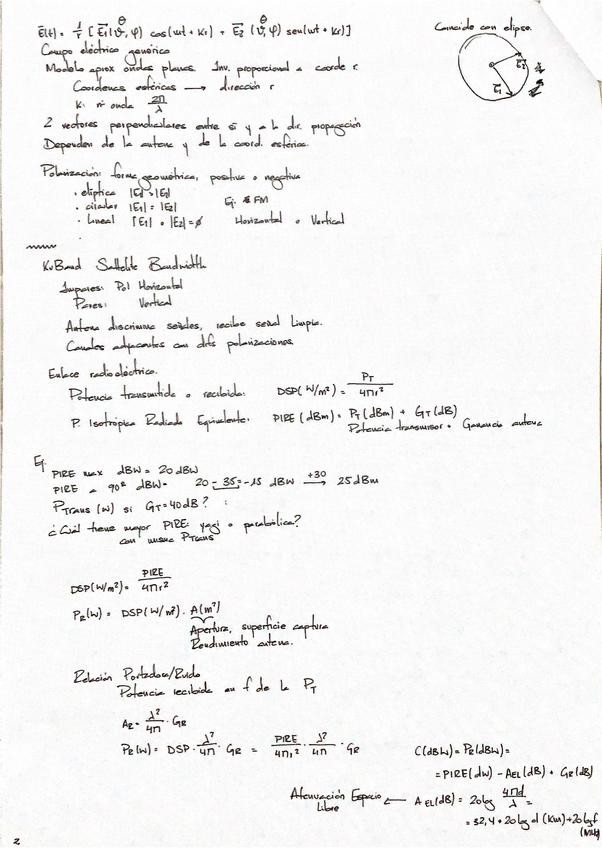 E(t) = 1/r [ E1(ϑ, φ) cos(ωt + Kr) + E2 (ϑ, φ) sen(ωt + Kr)]
θ θ
Coincide con elipse.
Campo eléctrico genérico
Modelo aprox ondas planas. Inv. proporcional a coorde r.
Coordenas esféricas → dirección r
K: nº onda 2π/λ
E2
E1
2 vectores perpendiculares entre sí y a la dir. propagación
Dependen de la antena y de la coord. esférica.
Polarización: forma geométrica, positiva o negativa
· elíptica |E1| > |E2|
· circular |E1| = |E2| Ej: FM
· Lineal |E1| o |E2| = ø Horizontal o Vertical
Ku Band Sattelite Bandwidth
Impares: Pol Horizontal
Pares: Vertical
Antena discrimina señales, recibe señal limpia.
Canales adjacentes con difs polarizaciones.
Enlace radioeléctrico.
Potencia transmitida o recibida: DSP(W/m²) = PT / 4πr²
P. Isotrópica Radiada Equivalente: PIRE (dBm) = PT (dBm) + GT (dB)
Potencia transmisor + Ganancia antena
Ej.
PIRE max dBW = 20 dBW
PIRE a 90º dBW = 20 - 35 = -15 dBW +30 → 25 dBm
PTrans (W) si GT = 40 dB? :
¿Cuál tiene mayor PIRE: yagi o parabólica?
con misma PTrans
DSP(W/m²) = PIRE / 4πr²
PR(W) = DSP(W/m²) · A(m²)
Apertura, superficie captura
Rendimiento antena.
Relación Portadora/Ruido
Potencia recibida en f de la PT
AR = λ²/4π · GR
PR(W) = DSP · λ²/4π · GR = PIRE/4πr² · λ²/4π · GR
C(dBW) = PR(dBW) =
= PIRE(dW) - AEL(dB) + GR(dB)
Atenuación Espacio Libre ← AEL(dB) = 20 log 4πd/λ =
= 32,4 + 20 log d (Km) + 20 log f (MHz)
2